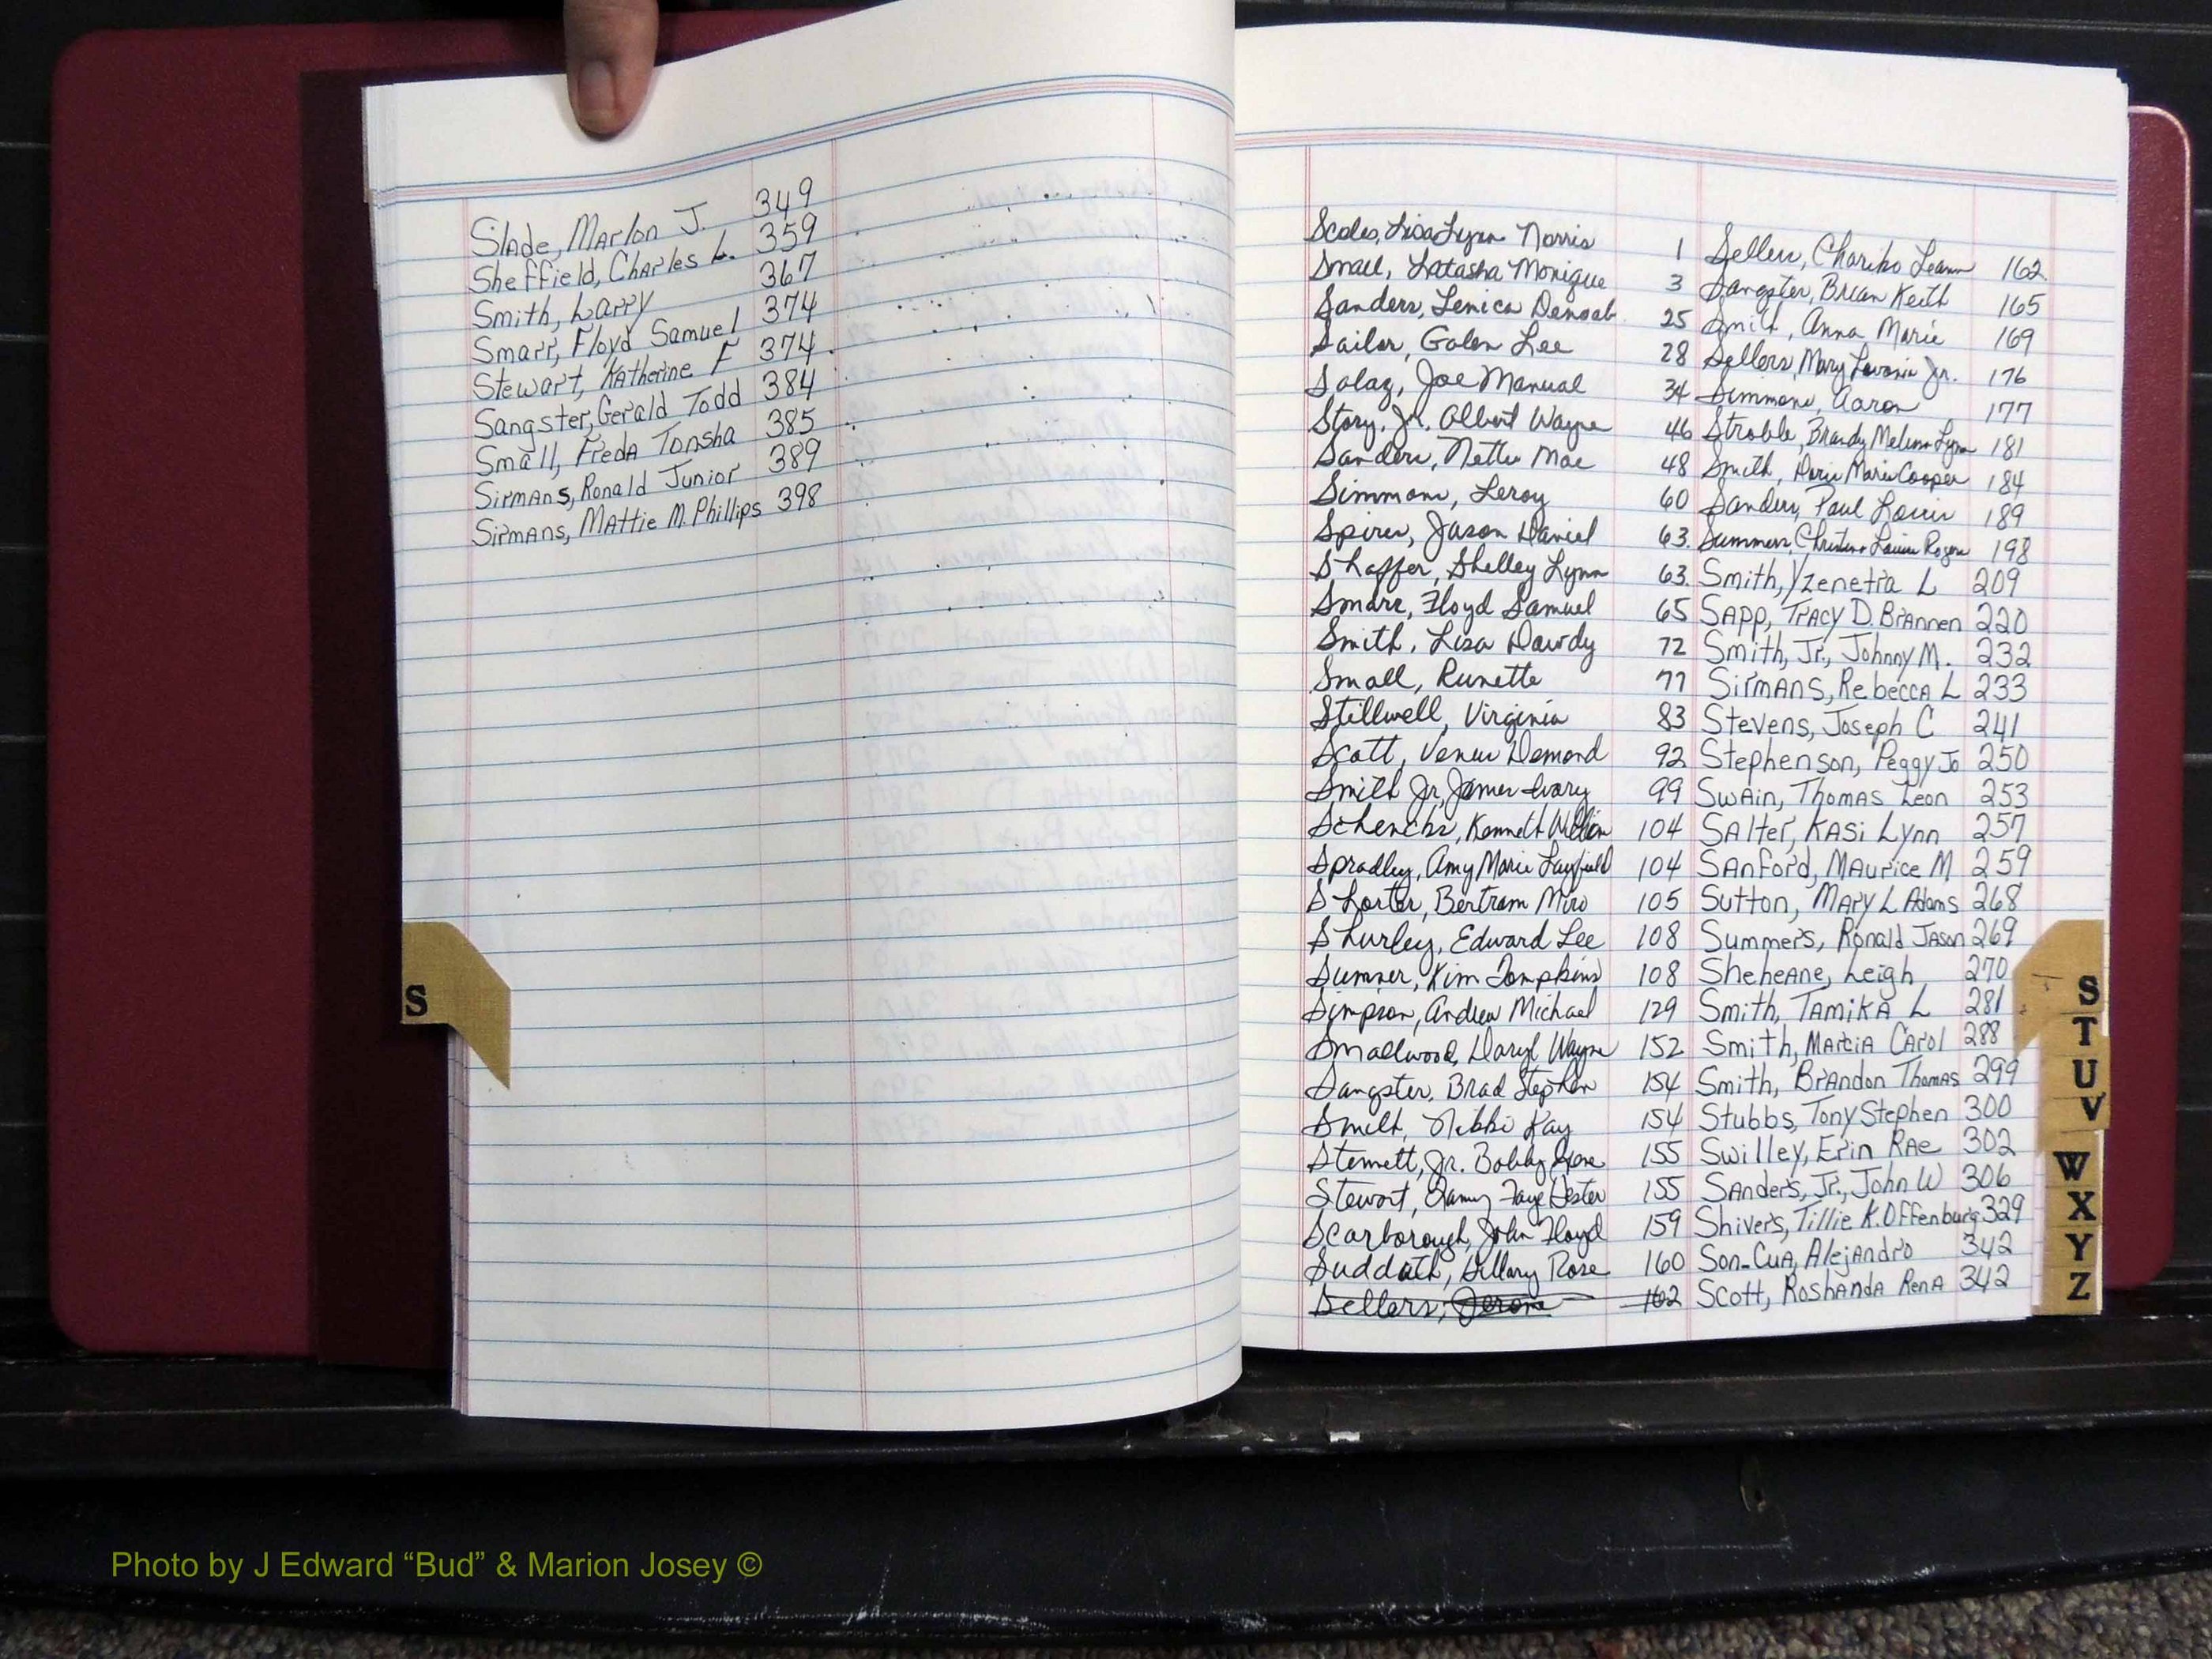 Slade, Marlon J. 349
Sheffield, Charles L. 359
Smith, Larry 367
Smarr, Floyd Samuel 374
Stewart, Katherine F 374
Sangster, Gerald Todd 384
Small, Freda Tonsha 385
Sirmans, Ronald Junior 389
Sirmans, Mattie M. Phillips 398
S
Scales, Lisa Lynn Norris 1
Small, Latasha Monique 3
Sanders, Lenica 25
Sailor, Galen Lee 28
Salaz, Joe Manual 34
Story, Jr. Albert Wayne 46
Sanders, Nettie Mae 48
Simmons, Leroy 60
Spires, Jason Daniel 63
Shaffer, Shelley Lynn 63
Smarr, Floyd Samuel 65
Smith, Lisa Dowdy 72
Small, Runette 77
Stillwell, Virginia 83
Scott, Demond 92
Smith Jr, James Ivory 99
Schencks, Kenneth William 104
Spradley, Amy Marie Layfield 104
Shorter, Bertram Miro 105
Shurley, Edward Lee 108
Sumner, Kim Tompkins 108
Simpson, Andrew Michael 129
Smallwood, Daryl Wayne 152
Sangster, Brad Stephen 154
Smith, Nikki Kay 154
Stennett, Jr. Bobby Gene 155
Stewart, Faye Hester 155
Scarborough, John Floyd 159
Suddath, Hillary Rose 160
Sellers, Jerome 162
Sellers, Chariko Leann 162
Sangster, Brian Keith 165
Smith, Anna Marie 169
Sellers, Mary Jr. 176
Simmons, Aaron 177
Stroble, Brandy Melissa Lynn 181
Smith, Marie Cooper 184
Sanders, Paul Louis 189
Summers, Christina Louise Rogers 198
Smith, Yzenetia L 209
Sapp, Tracy D. Brannen 220
Smith, Jr., Johnny M. 232
Sirmans, Rebecca L 233
Stevens, Joseph C 241
Stephenson, Peggy Jo 250
Swain, Thomas Leon 253
Salter, Kasi Lynn 257
Sanford, Maurice M 259
Sutton, Mary L Adams 268
Summers, Ronald Jason 269
Sheheane, Leigh 270
Smith, Tamika L 281
Smith, Marcia Carol 288
Smith, Brandon Thomas 299
Stubbs, Tony Stephen 300
Swilley, Erin Rae 302
Sanders, Jr., John W 306
Shivers, Tillie K. Offenburg 329
Son-Cua, Alejandro 342
Scott, Roshanda Rena 342
S
T
U
V
W
X
Y
Z
Photo by J Edward “Bud” & Marion Josey ©